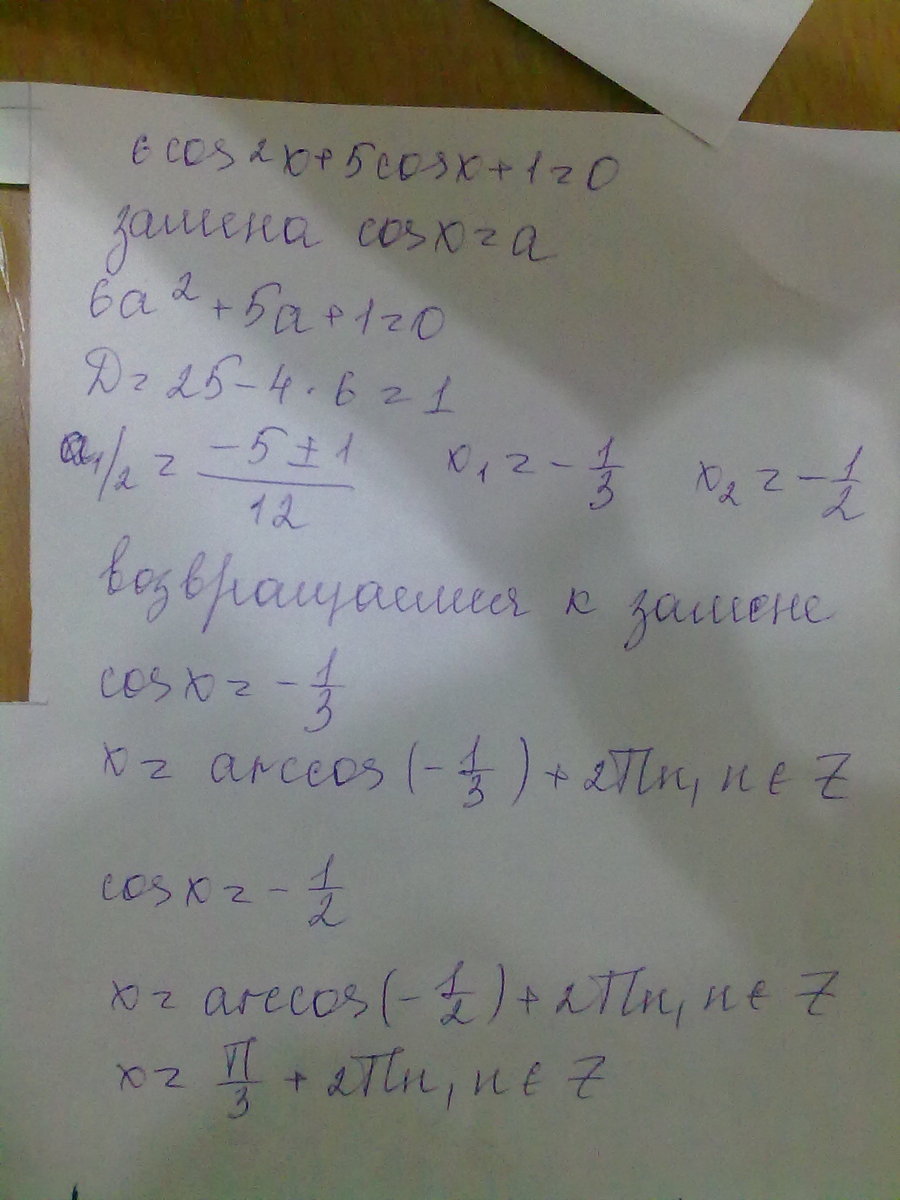 6 cos 2x + 5 cos x + 1 = 0
замена cos x = a
6a² + 5a + 1 = 0
D = 25 - 4 · 6 = 1
a₁/₂ = (-5 ± 1)/12 x₁ = -1/3 x₂ = -1/2
возвращаемся к замене
cos x = -1/3
x = arccos(-1/3) + 2πn, n ∈ Z
cos x = -1/2
x = arccos(-1/2) + 2πn, n ∈ Z
x = π/3 + 2πn, n ∈ Z